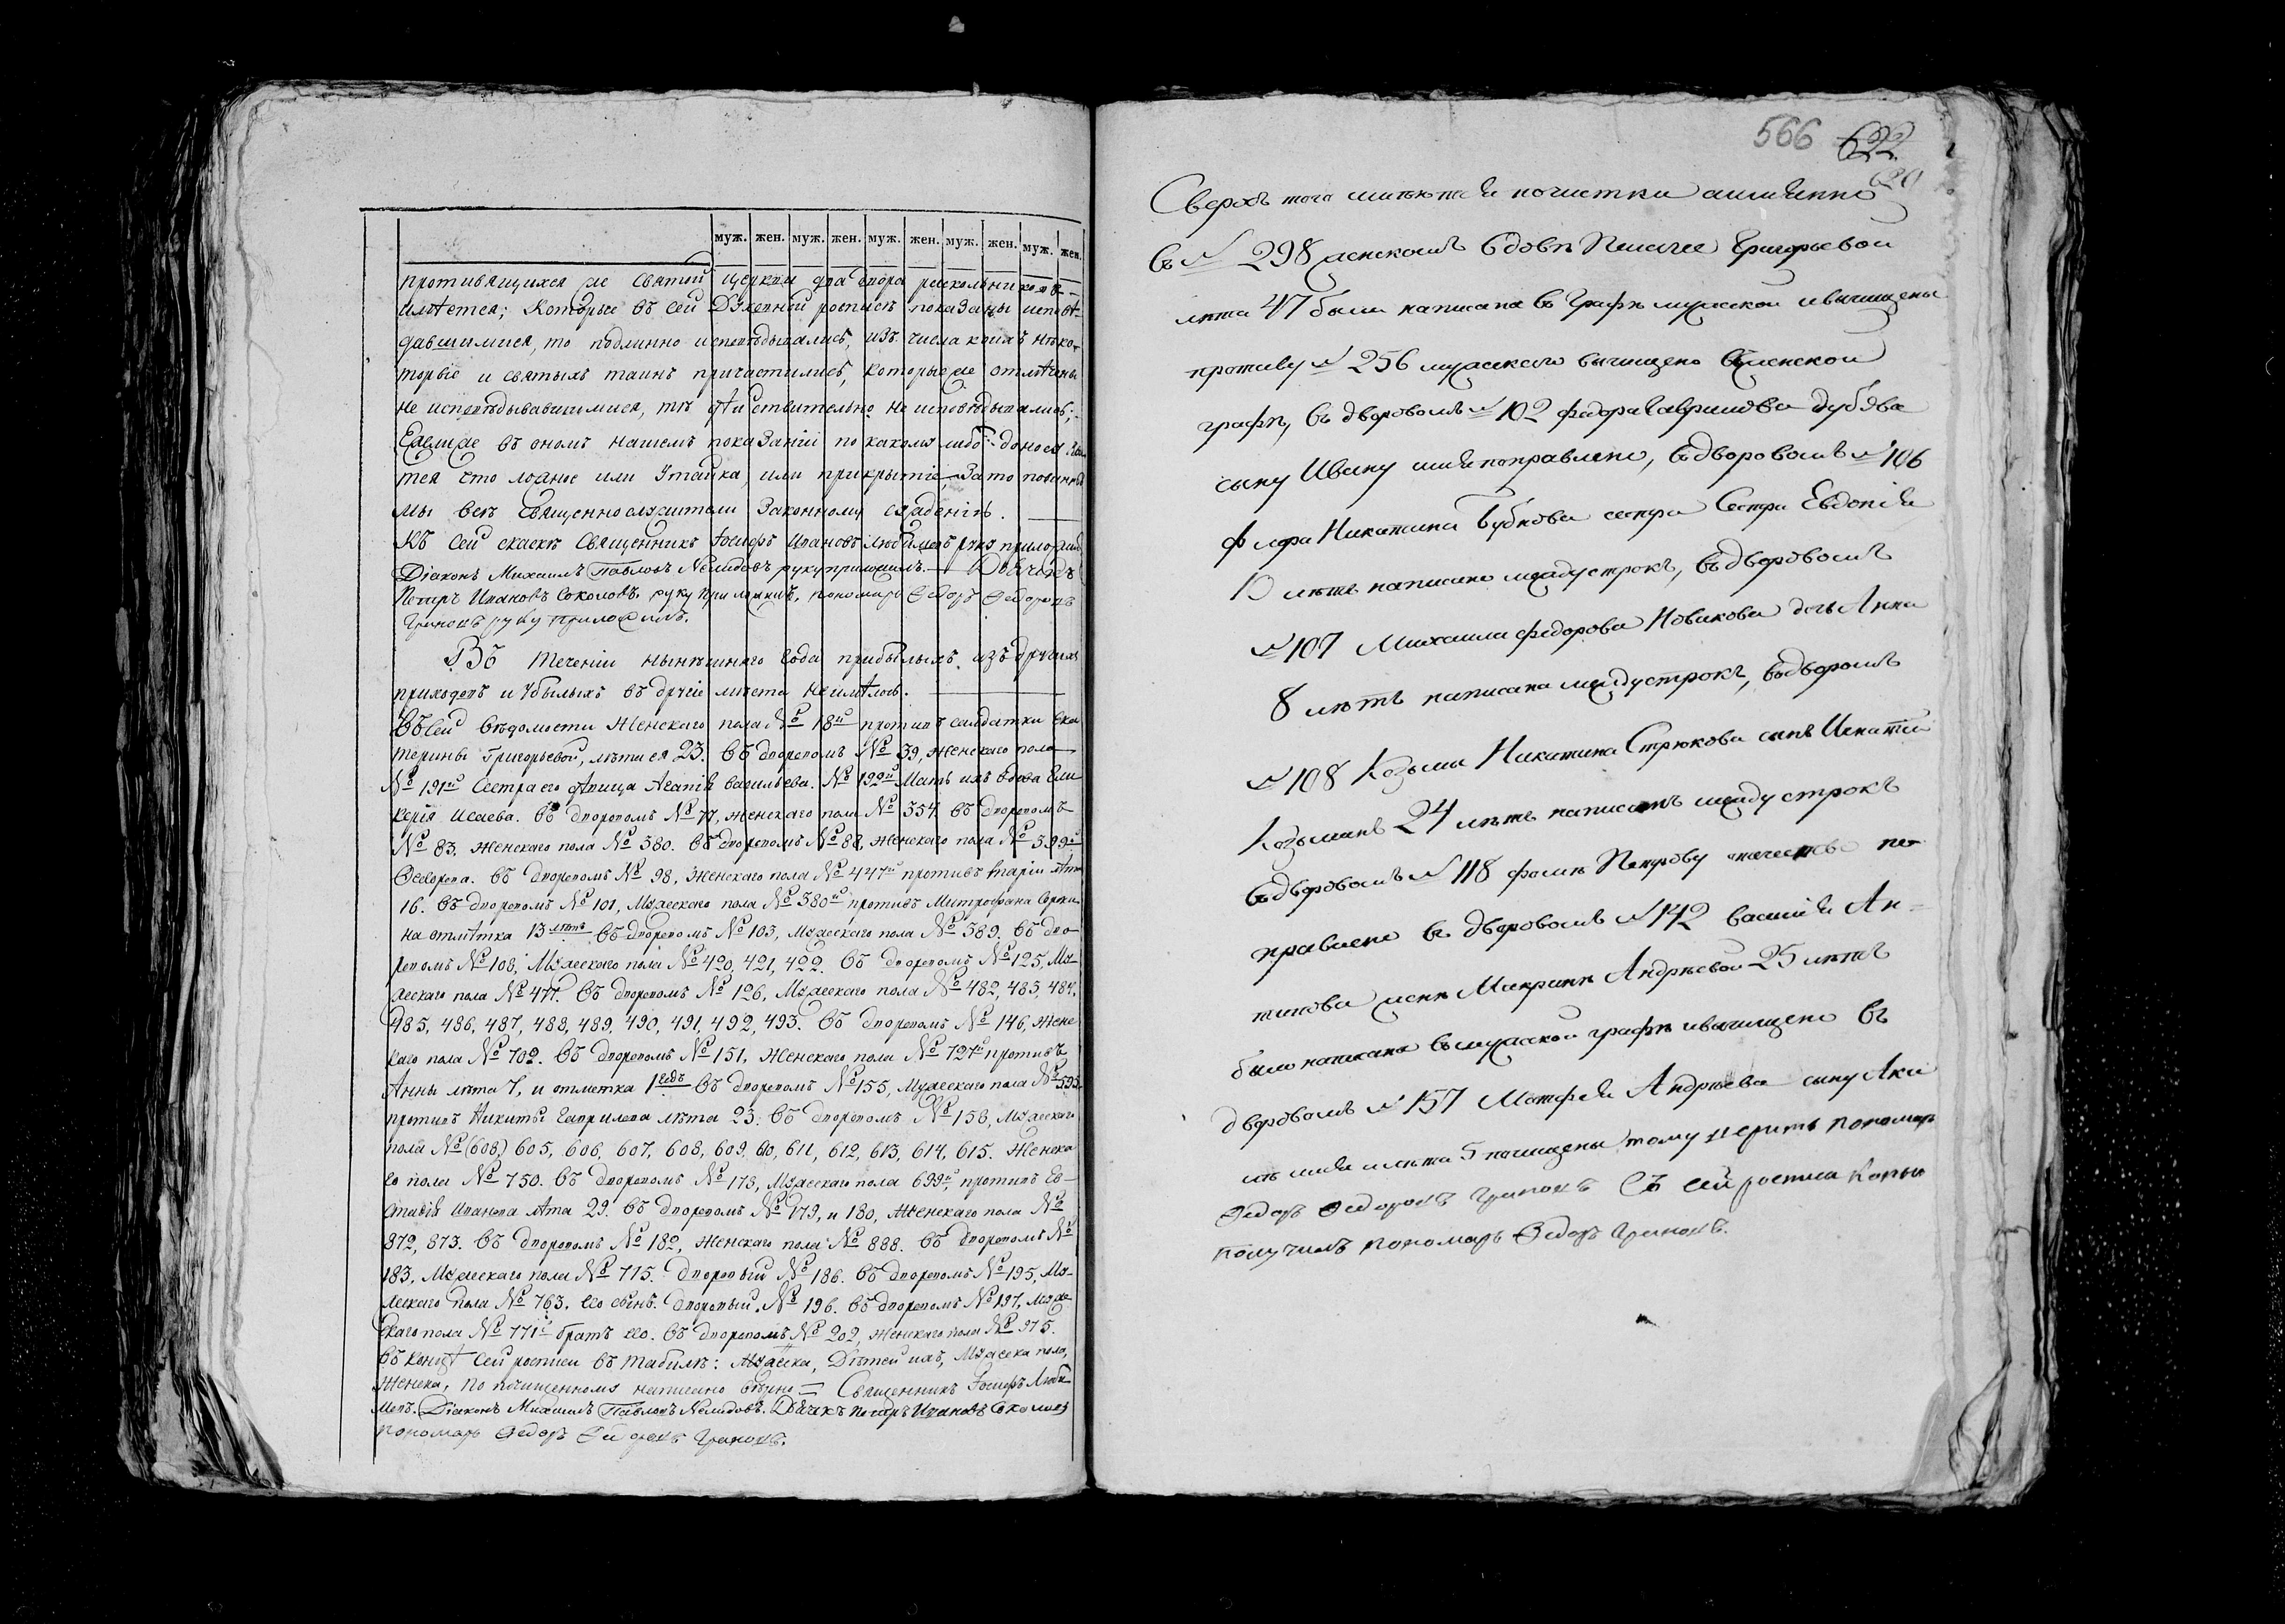 муж. жен. муж. жен. муж. жен. муж. жен. муж. жен.
противящихся же святой церкви два двора раскольниковъ
имѣется; которые въ сей духовной росписѣ показаны исповѣ-
давшимися, то подлинно исповѣдывались, изъ числа коихъ нѣко-
торые и святыхъ таинъ причастились, которые же отмѣчены
не исповѣдывавшимися, тѣ дѣйствительно не исповѣдывались;
Ежели же въ ономъ нашемъ показаніи по какому либо доносу
тся что ложное или утайка, или прикрытіе, за то повинны
мы всѣ священнослужители законному сужденію.
Къ сей сказкѣ Священникъ Іосифъ Ивановъ Любимовъ руку приложилъ
Діаконъ Михаилъ Павловъ Нелидовъ руку приложилъ. Дьячекъ
Петръ Ивановъ Соколовъ руку приложилъ, пономарь Ѳедоръ Ѳедоровъ
руку приложилъ.
Въ теченіи нынѣшняго года прибылыхъ изъ другихъ
приходовъ и убылыхъ въ другіе мѣста не имѣлось.
Въ сей вѣдомости женскаго пола № 18й противъ салдатки Ека
терины Григорьевой, лѣта ея 23. Въ дворовомъ № 39, женскаго пола
№ 191й Сестра его дѣвица Агапія Васильева. № 192й Мать ихъ вдова Гли
керія Исаева. Въ дворовомъ № 77, женскаго пола № 354. Въ дворовомъ
№ 83. женскаго пола № 380. Въ дворовомъ № 88, женскаго пола № 399й
Ѳедорова. Въ дворовомъ № 98, женскаго пола № 447й противъ Маріи лѣта
16. Въ дворовомъ № 101, мужескаго пола № 380й противъ Митрофана Сороки
на отмѣтка 13 лѣтъ. Въ дворовомъ № 103, мужескаго пола № 389. Въ дво-
ровомъ № 108, мужескаго пола № 420, 421, 422. Въ дворовомъ № 125, му-
жескаго пола № 477. Въ дворовомъ № 126, мужескаго пола № 482, 483, 484,
485, 486, 487, 488, 489, 490, 491, 492, 493. Въ дворовомъ № 146, женс
каго пола № 702. Въ дворовомъ № 151, женскаго пола № 727й противъ
Анны лѣта 1, и отметка 1 годъ. Въ дворовомъ № 155, мужескаго пола № 595
противъ Никиты Гаврилова лѣта 23. Въ дворовомъ № 158, мужескаго
пола № (608) 605, 606, 607, 608, 609, 610, 611, 612, 613, 614, 615. Женска
го пола № 750. Въ дворовомъ № 173, мужескаго пола 699й, противъ Ев-
стафія Иванова лѣта 29. Въ дворовомъ № 179, и 180, женскаго пола №
872, 873. Въ дворовомъ № 182, женскаго пола № 888. Въ дворовомъ №
183, мужескаго пола № 715. Дворовый № 186. Въ дворовомъ № 195, му-
жескаго пола № 763. его сынъ. Дворовый № 196. Въ дворовомъ № 197, муже
скаго пола № 771й братъ его. Въ дворовомъ № 202, женскаго пола № 975.
Въ концѣ сей росписи въ табели: мужеска, дѣтей ихъ, мужеска пола,
женска, по почищенному написано вѣрно = Священникъ Іосифъ Люби
мовъ. Діаконъ Михаилъ Павловъ Нелидовъ. Дьячекъ Петръ Ивановъ Соколовъ
пономарь Ѳедоръ Ѳедоровъ
566 622
Сверхъ того имеются и почистки а именно
въ № 298 женскомъ вдовѣ Пелагее Григорьевой
лѣта 47 были написана въ графѣ мужской и вычищены
противу № 256 мужескаго вычищено въ женской
графѣ, въ дворовомъ № 102 Федора Гаврилова
сыну Ивану имя поправлено, въ дворовомъ № 106
Флора Никитина Бубнова сестра Сестра Евдокія
лѣтъ написана между строкъ, въ дворовомъ
№ 107 Михаила Федорова Новикова дочь Анна
8 лѣтъ написана между строкъ, въ дворомъ
№ 108 Козьмы Никитина Стрюкова сынъ Игнатій
Козьминъ 24 лѣтъ написанъ между строкъ
въ дворовомъ № 118 Фомѣ Петрову отчество по-
правлено въ дворовомъ № 142 Василія Ан-
типова женѣ Макринѣ Андрѣевой 25 лѣтъ
было написано въ мужской графѣ и вычищено въ
дворовомъ № 157 Матфея Андрѣева сыну Аки
му имя и лѣта 5 почищены тому верить пономарь
Ѳедоръ Ѳедоровъ Съ сей росписи копію
получилъ пономарь Ѳедоръ